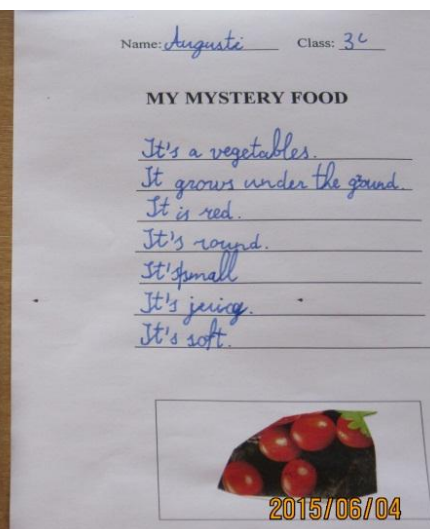 Name: Augustė Class: 3c
MY MYSTERY FOOD
It's a vegetables.
It grows under the ground.
It is red.
It's round.
It's small
It's juricy.
It's soft.
2015/06/04